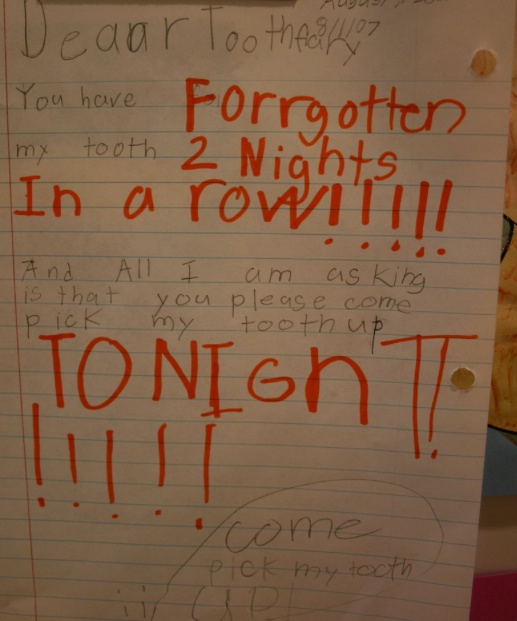 August
8/1/07
Deaar Toothfeary
You have Forrgotten
my tooth 2 Nights
In a row!!!!!
And All I am asking
is that you please come
pick my tooth up
TONIGhT!
!!!!!
come
pick my tooth
UP!